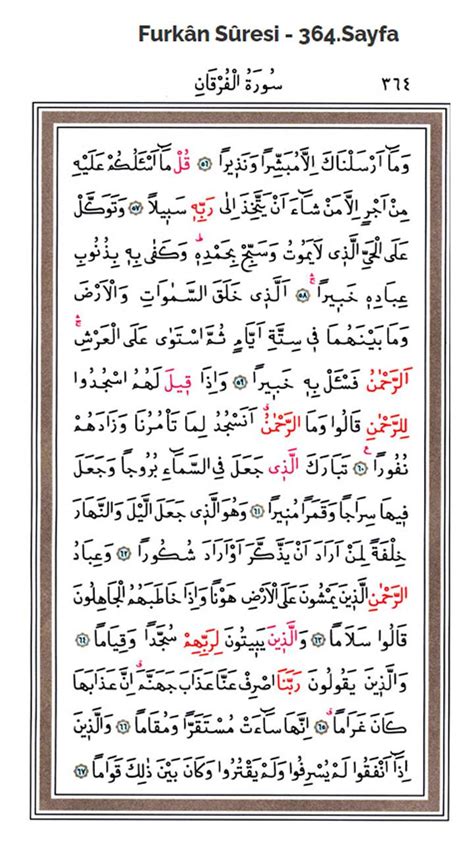 Furkân Sûresi - 364.Sayfa
سُورَةُ الْفُرْقَانِ ٣٦٤
وَمَٓا اَرْسَلْنَاكَ اِلَّا مُبَشِّراً وَنَذ۪يراً ﴿٥٦﴾ قُلْ مَٓا اَسْـَٔلُكُمْ عَلَيْهِ
مِنْ اَجْرٍ اِلَّا مَنْ شَٓاءَ اَنْ يَتَّخِذَ اِلٰى رَبِّه۪ سَب۪يلاً ﴿٥٧﴾ وَتَوَكَّلْ
عَلَى الْحَيِّ الَّذ۪ي لَا يَمُوتُ وَسَبِّحْ بِحَمْدِه۪ۜ وَكَفٰى بِه۪ بِذُنُوبِ
عِبَادِه۪ خَب۪يراًۚ ﴿٥٨﴾ اَلَّذ۪ي خَلَقَ السَّمٰوَاتِ وَالْاَرْضَ
وَمَا بَيْنَهُمَا ف۪ي سِتَّةِ اَيَّامٍ ثُمَّ اسْتَوٰى عَلَى الْعَرْشِۚ
اَلرَّحْمٰنُ فَسْـَٔلْ بِه۪ خَب۪يراً ﴿٥٩﴾ وَاِذَا ق۪يلَ لَهُمُ اسْجُدُوا
لِلرَّحْمٰنِ قَالُوا وَمَا الرَّحْمٰنُۗ اَنَسْجُدُ لِمَا تَأْمُرُنَا وَزَادَهُمْ
نُفُوراً ﴿٦٠﴾ تَبَارَكَ الَّذ۪ي جَعَلَ فِي السَّمَٓاءِ بُرُوجاً وَجَعَلَ
ف۪يهَا سِرَاجاً وَقَمَراً مُن۪يراً ﴿٦١﴾ وَهُوَ الَّذ۪ي جَعَلَ الَّيْلَ وَالنَّهَارَ
خِلْفَةً لِمَنْ اَرَادَ اَنْ يَذَّكَّرَ اَوْ اَرَادَ شُكُوراً ﴿٦٢﴾ وَعِبَادُ
الرَّحْمٰنِ الَّذ۪ينَ يَمْشُونَ عَلَى الْاَرْضِ هَوْناً وَاِذَا خَاطَبَهُمُ الْجَاهِلُونَ
قَالُوا سَلَاماً ﴿٦٣﴾ وَالَّذ۪ينَ يَب۪يتُونَ لِرَبِّهِمْ سُجَّداً وَقِيَاماً ﴿٦٤﴾
وَالَّذ۪ينَ يَقُولُونَ رَبَّنَا اصْرِفْ عَنَّا عَذَابَ جَهَنَّمَۗ اِنَّ عَذَابَهَا
كَانَ غَرَاماًۗ ﴿٦٥﴾ اِنَّهَا سَٓاءَتْ مُسْتَقَراًّ وَمُقَاماً ﴿٦٦﴾ وَالَّذ۪ينَ
اِذَٓا اَنْفَقُوا لَمْ يُسْرِفُوا وَلَمْ يَقْتُرُوا وَكَانَ بَيْنَ ذٰلِكَ قَوَاماً ﴿٦٧﴾